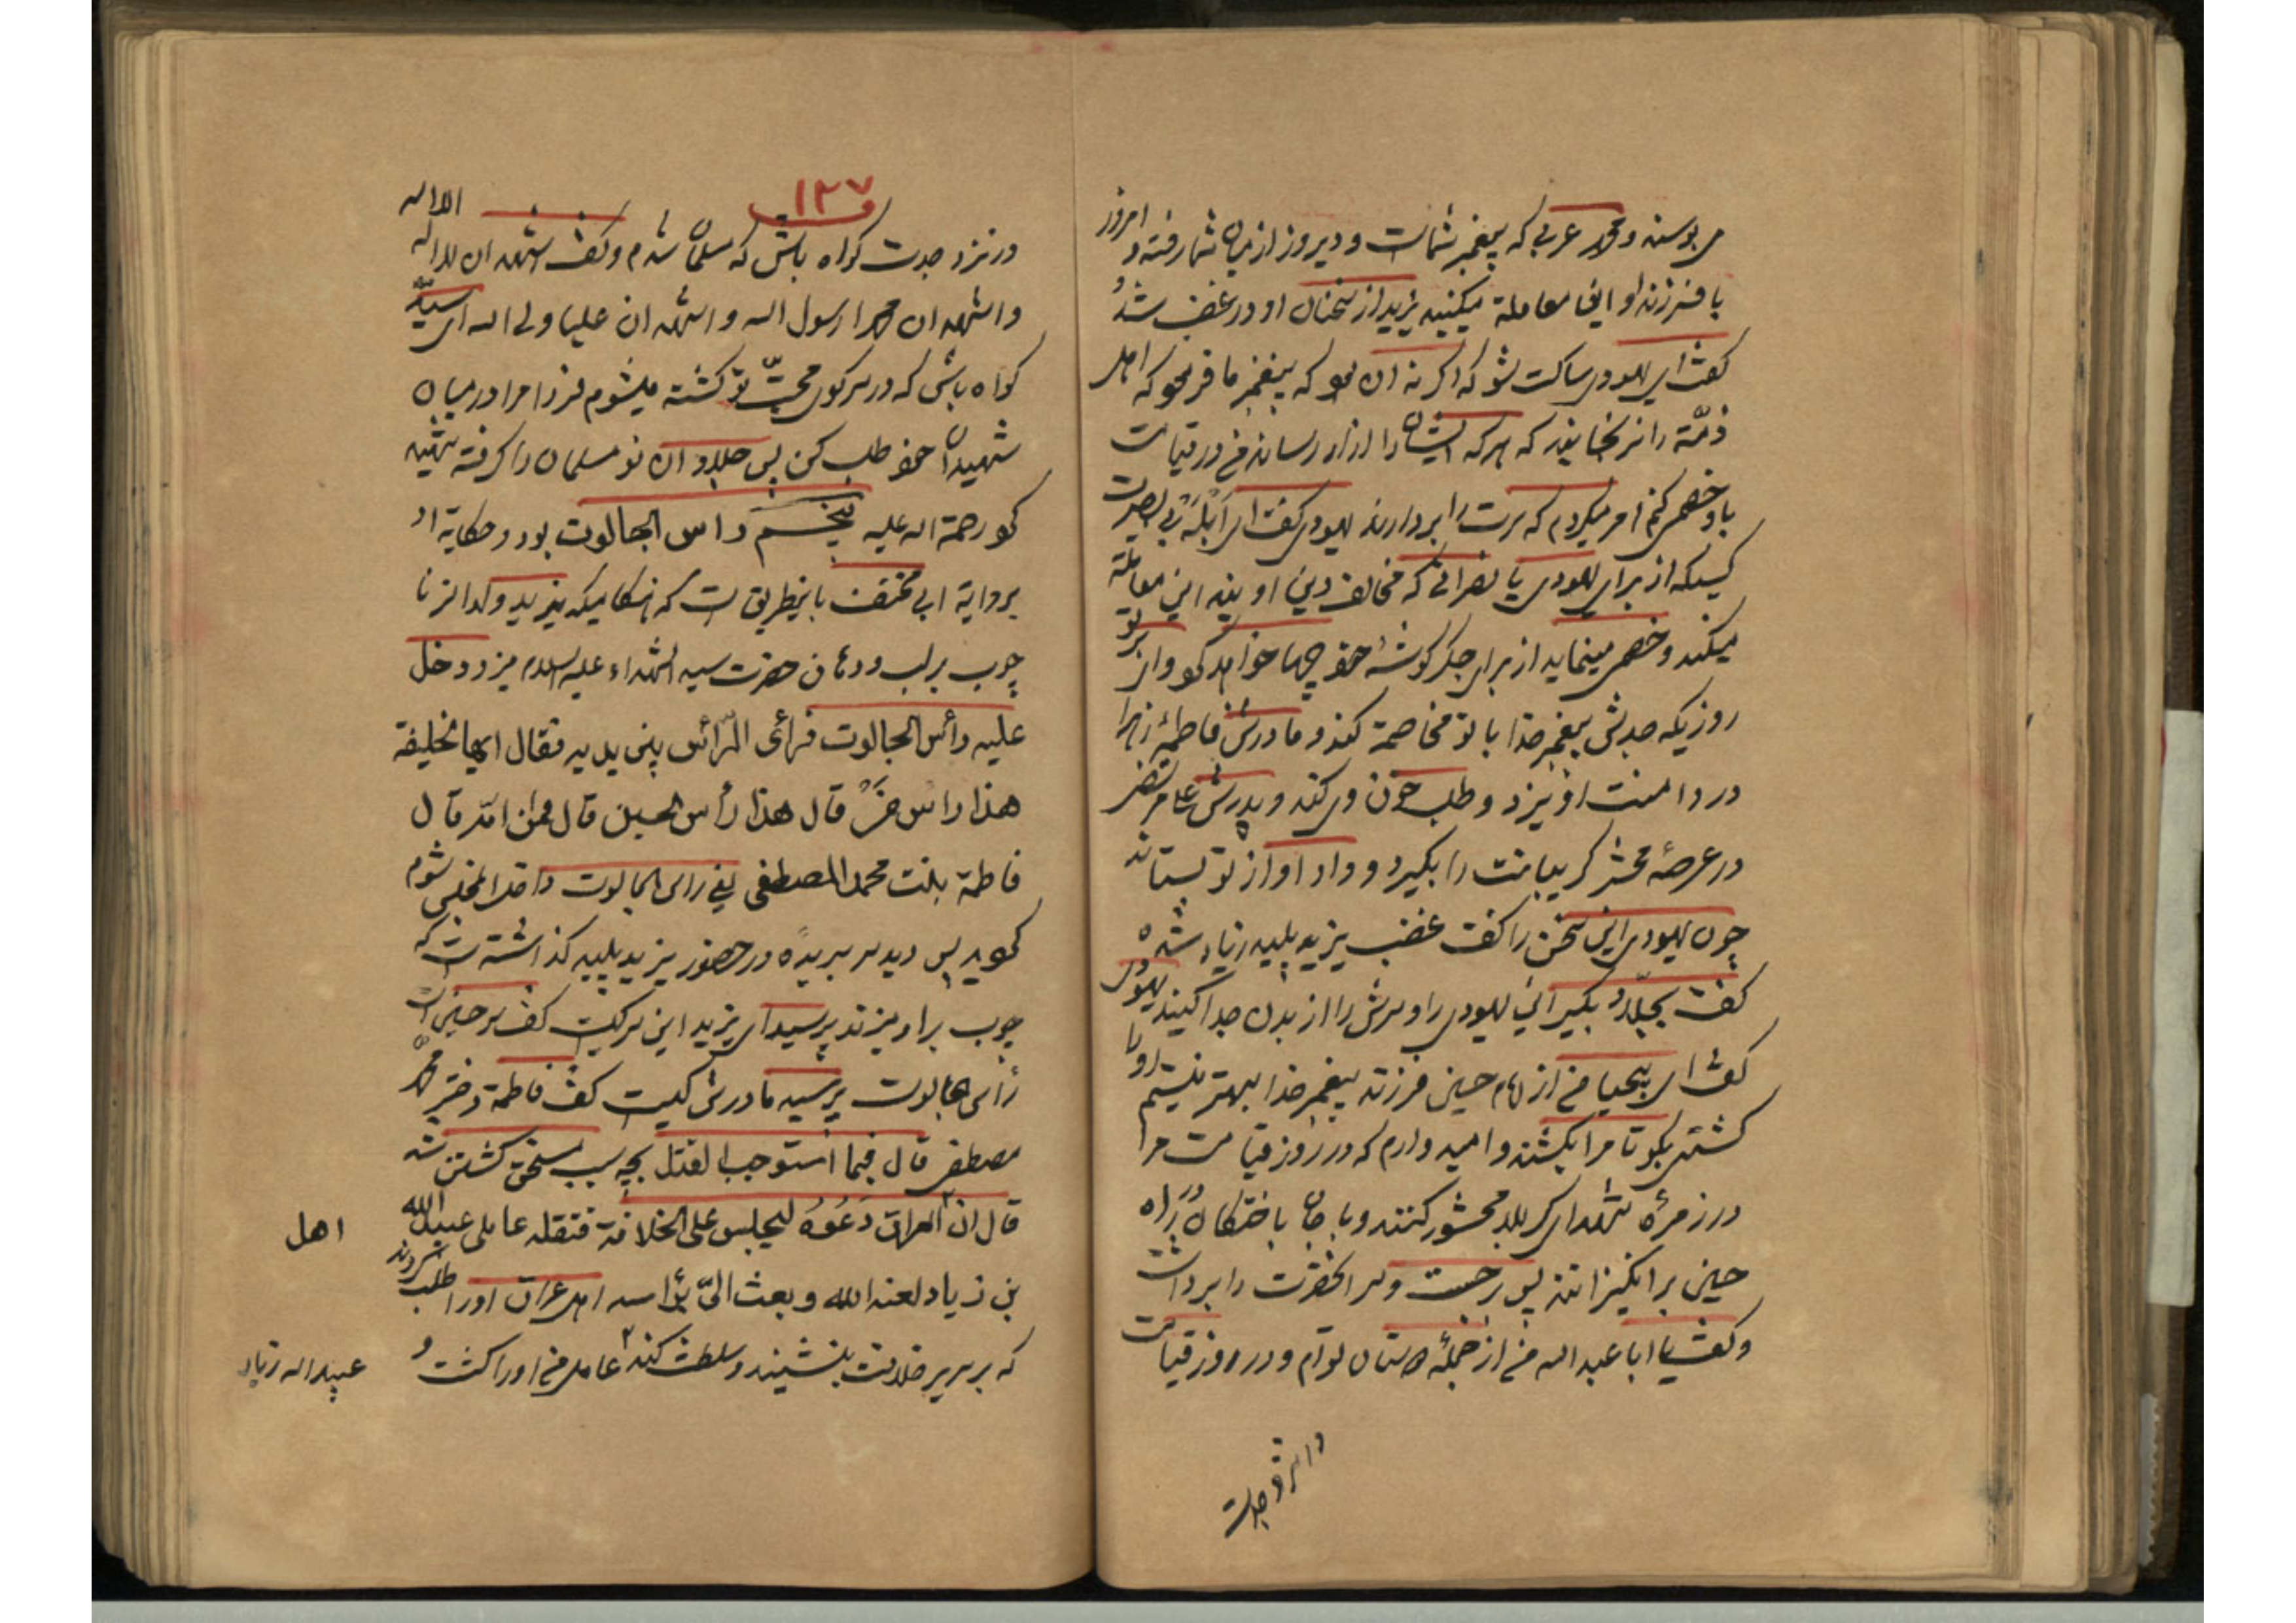 می بوسند و محمد عربی که پیغمبر شماست و دیروز از میان شما رفته و امروز
با فرزند او این معاملة میکنید یزید از سخنان او در غضب شد و
کفت ای یهودی ساکت شو که اکر نه ان بود که پیغمبر ما فرمود که اهل
ذمّة را نرنجانید که هرکه ایشان را ازار رساند من در قیامت
با او خصمی کنم امر میکردم که سرت را بردارند یهودی کفت ای ابله بی بصیرت
کسیکه از برای یهودی یا نصرانی که مخالف دین او یند این معاملة
میکند و خصمی مینماید از برای جکر کوشهٔ خود چها خواهد کرد وای بر تو
روزیکه جدش پیغمبر خدا با تو مخاصمة کند و مادرش فاطمهٔ زهرا
در دامنت اویزد و طلب خون وی کند و پدرش علی مرتضی
در عرصهٔ محشر کریبانت را بکیرد و داد او از تو بستاند
چون یهودی این سخن را کفت غضب یزید پلید زیاد شده
کفت بجلّاد بکیر این یهودی را و سرش را از بدن جدا کنید یهودی
کفت ای بیحیا من از امام حسین فرزند پیغمبر خدا بهتر نیستم او را
کشتی بکو تا مرا بکشند و امید دارم که در روز قیامت مرا
در زمرهٔ شهدای کربلا محشور کنند و با جان باختکان در راه
حسین برانکیزانند پس برجست و سر انحضرت را برداشت
و کفت یا ابا عبد الله من از جملهٔ دوستان توام و در روز قیامت
در نزد جدت
۱۳۷
در نزد جدت کواه باش که مسلمان شدم و کفت اشهد ان لا اله الا الله
و اشهد ان محمدا رسول الله و اشهد ان علیا ولی الله ای سید
کواه باشی که در سر کوی محبّت تو کشته میشوم فردا مرا در میان
شهیدان خود طلب کن پس جلاد ان نو مسلمان را کرفته شهید
کرد رحمة الله علیه پنجم راس الجالوت بود و حکایة او
بروایة ابی مخنف باینطریق است که هنکامیکه یزید ولد الزنا
چوب بر لب و دندان حضرت سید الشهداء علیه السلام میزد دخل
علیه رأس الجالوت فرأی الرّأس بین یدیه فقال ایها الخلیفة
هذا راس من قال هذا رأس الحسین قال فمن امّه قال
فاطمة بنت محمد المصطفی یعنی راس الجالوت داخل مجلس شوم
کردید پس دید سر بریدهٔ در حضور یزید پلید کذاشته است که
چوب بر او میزند پرسید ای یزید این سر کیست کفت سر حسین است
رأس الجالوت پرسید مادرش کیست کفت فاطمة دختر محمد
مصطفی قال فبما استوجب القتل بچه سبب مستحق کشتن شد
قال ان العراق دَعَوْهُ لیجلس علی الخلافة فقتله عاملی عبید الله
اهل
بن زیاد لعنه الله و بعث الیّ برأسه اهل عراق او را طلب کردند
که بر سریر خلافت بنشیند و سلطنت کند عامل من او را کشت و
عبید الله زیاد